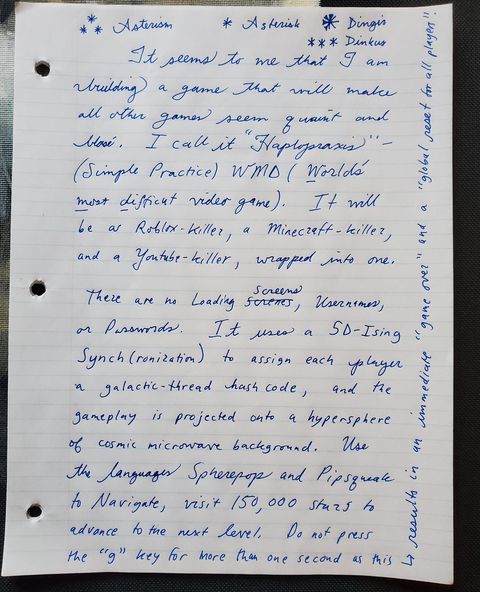 ⁂ Asterism * Asterisk ⁕ Dingis
*** Dinkus
It seems to me that I am
building a game that will make
all other games seem quaint and
blasé. I call it "Haplopraxis" -
(Simple Practice) WMD (World's
most difficult video game). It will
be a Roblox-killer, a Minecraft-killer,
and a Youtube-killer, wrapped into one.
There are no Loading Screens, Usernames,
or Passwords. It uses a 5D-Ising
Synch(ronization) to assign each player
a galactic-thread hash code, and the
gameplay is projected onto a hypersphere
of cosmic microwave background. Use
the languages Spherepop and Pipsqueak
to Navigate, visit 150,000 stars to
advance to the next level. Do not press
the "g" key for more than one second as this
↳ results in an immediate "game over" and a "global reset for all players".